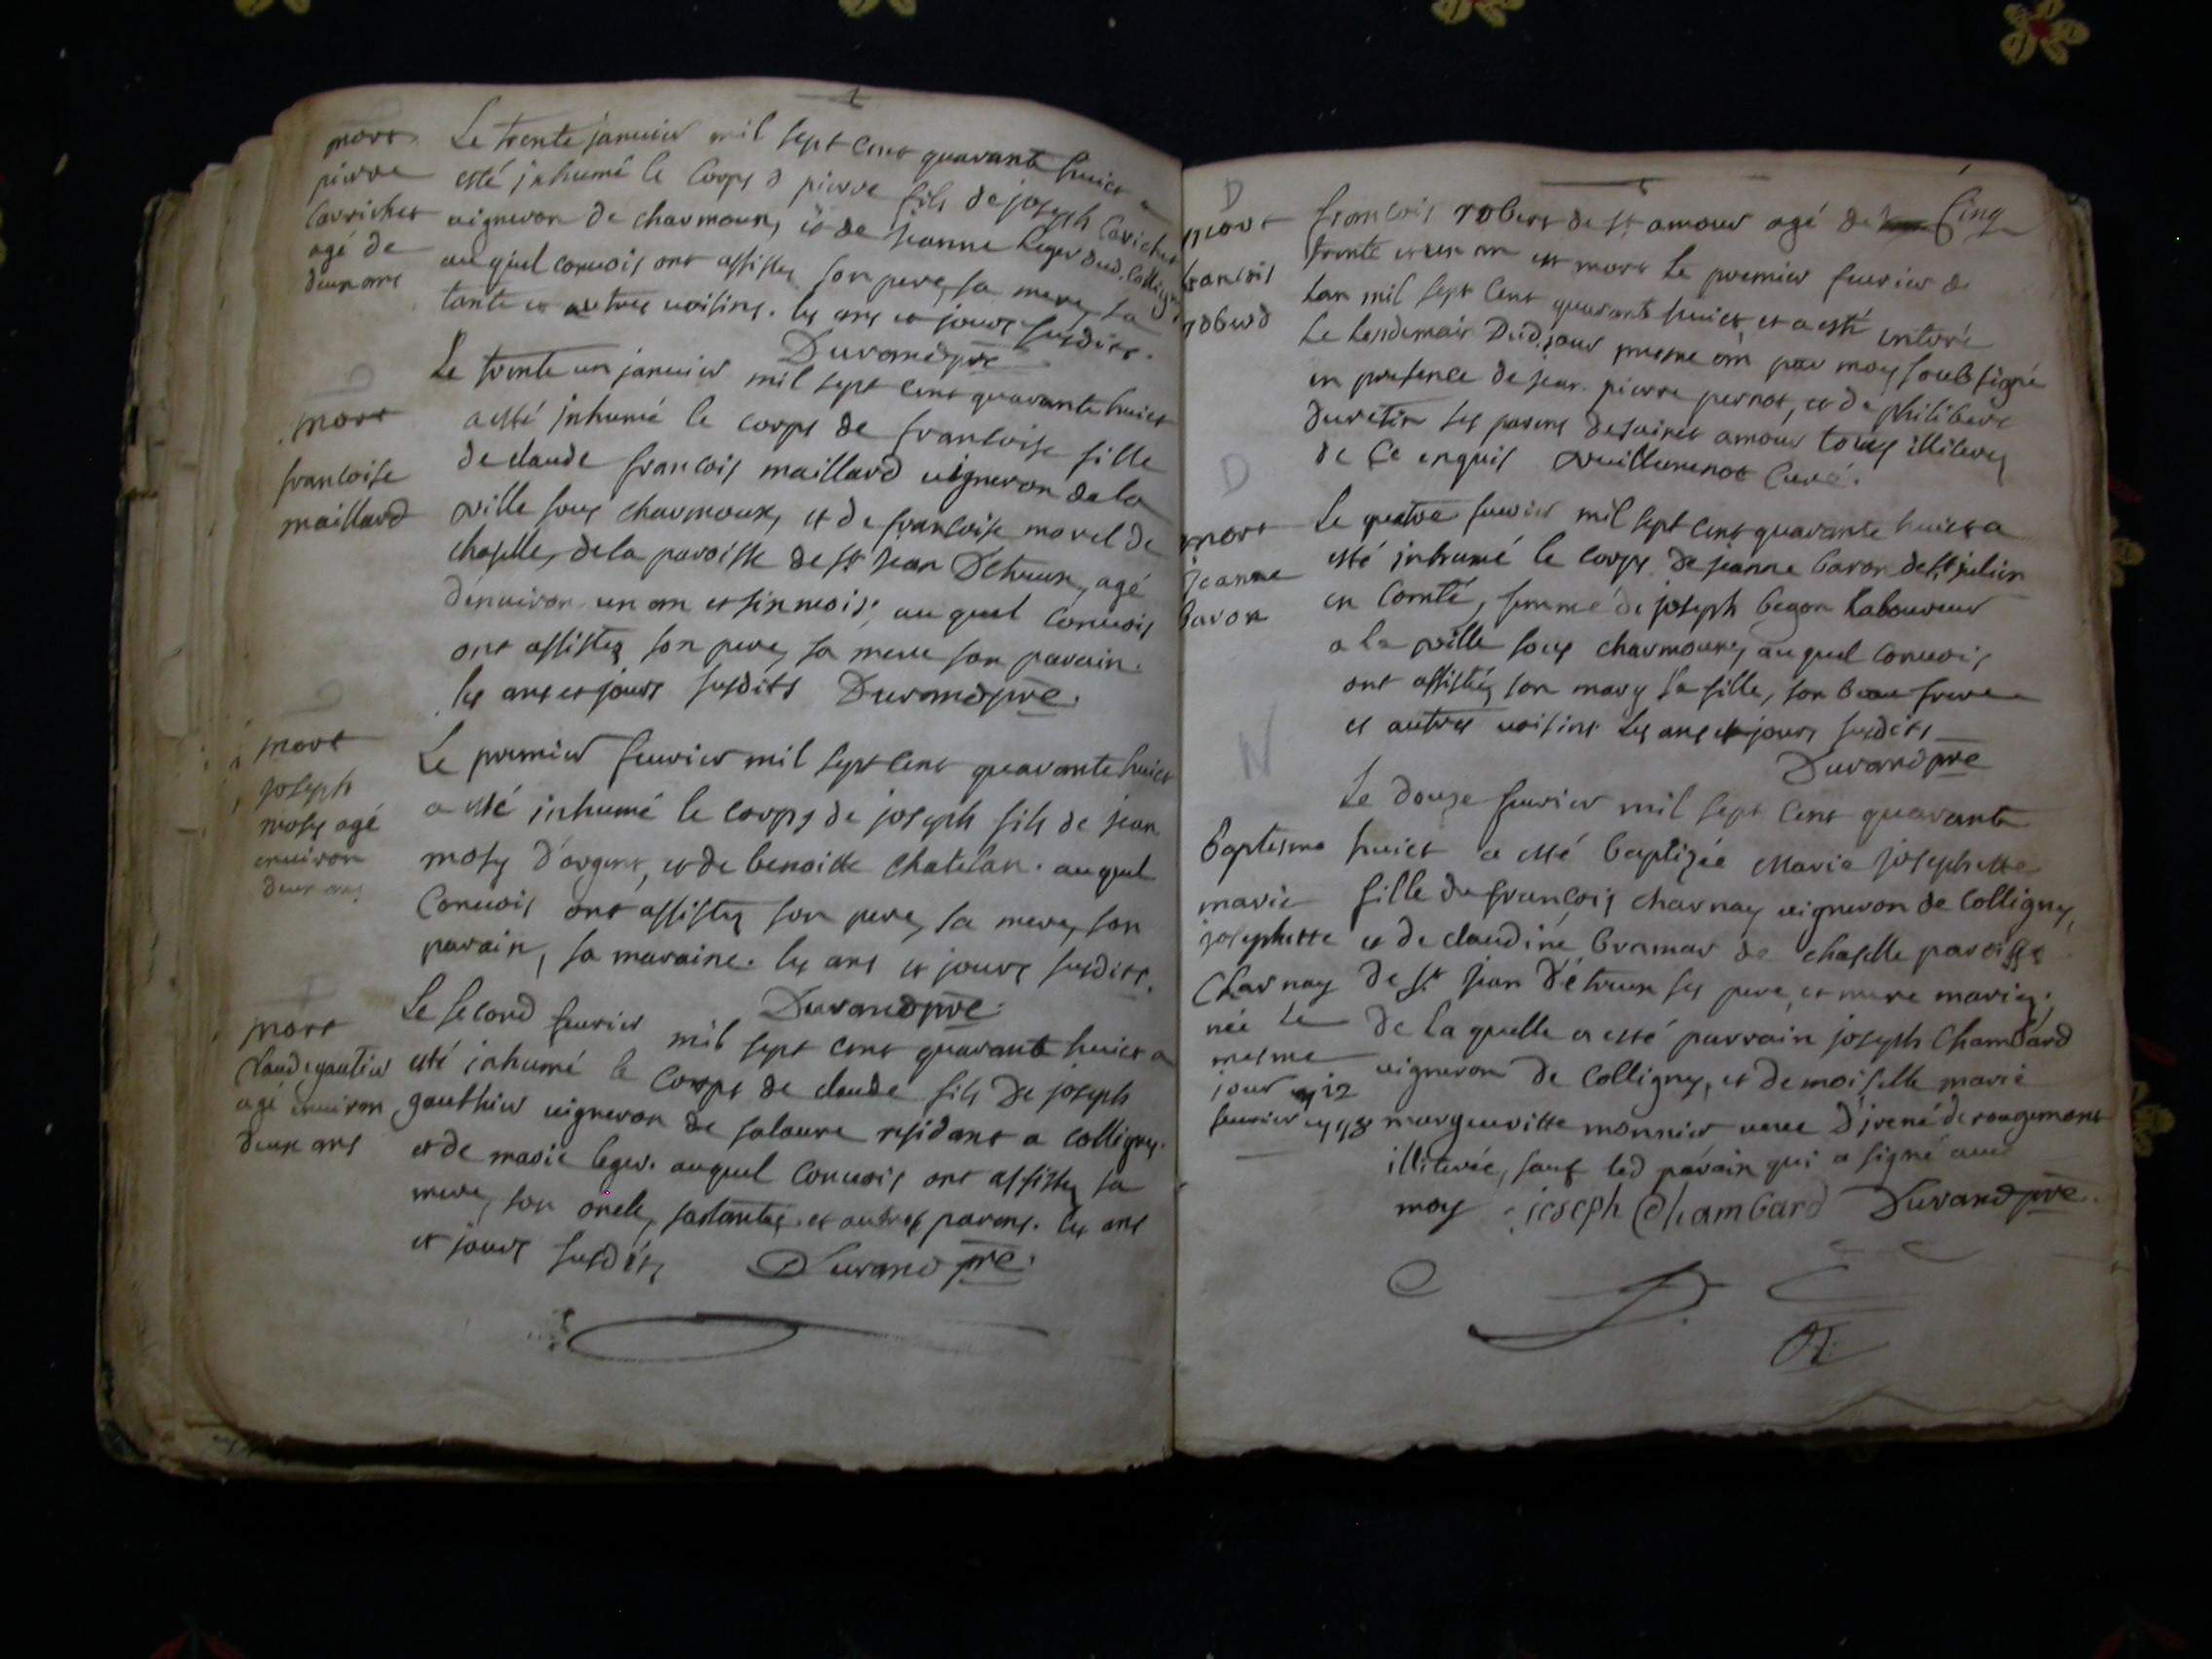 mort
pierre
Carrichet
agé de
deux ans
Le trente januier mil sept cent quarante huict a
esté jnhumé le corps d pierre fils de joseph Carichet
uigneron de charmoux, et de jeanne leger dud. Colligny
auquel conuois ont assistez son pere, sa mere, sa
tante et autres uoisins. les ans et jours susdits.
Durand pre
mort
francoise
maillard
Le trente un januier mil sept cent quarante huict
a esté jnhumé le corps de francoise fille
de claude francois maillard uigneron de la
ville sous charmoux, et de francoise morel de
chaselle, de la paroisse de st jean D'etreux, agé
d'enuiron un an et six mois; auquel conuois
ont assistez son pere, sa mere son parain.
les ans et jours susdits Durand pre.
mort
joseph
mosy agé
enuiron
deux ans
Le premier feurier mil sept cent quarante huict
a esté jnhumé le corps de joseph fils de jean
mosy d'argent, et de benoitte chatelan. auquel
Conuois ont assistez son pere, sa mere, son
parain, sa maraine. les ans et jours susdits.
Durand pre.
mort
Claude gautier
agé enuiron
deux ans
Le second feurier mil sept cent quarante huict a
esté jnhumé le corps de claude fils de joseph
gauthier uigneron de salaure residant a colligny.
et de marie leger. auquel conuois ont assistez sa
mere, son oncle, sa tantes et autres parens. les ans
et jours susdits Durand pre.
D
mort
francois
robert
francois robert de st amour agé de Cinq
trente et un an est mort le premier feurier de
lan mil sept cent quarante huict, et a esté enteré
le lendemain Dud. jour mesme an par moy soubsigné
en presence de jean pierre pernot, et de philibert
duretin ses parens de sainct amour tous illiterez
de ce enquis vuillemenot Curé.
D
mort
jeanne
baron
Le quatre feurier mil sept cent quarante huict a
esté jnhumé le corps de jeanne baron de st julien
en Comté, femme de joseph begon laboureur
a la ville sous charmoux, auquel conuois
ont assistéz son mary sa fille, son beau frere
et autres uoisins les ans et jours susdits
Durand pre
N
Baptesme
marie
josephette
Charnay
née le
mesme
jour 12
feurier 1748
Le douze feurier mil sept cent quarante
huict a esté baptizée Marie josephette
fille de francois charnay uigneron de Colligny,
et de claudine bramar de chaselle paroisse
de st jean d'étreux ses pere, et mere mariez.
de la quelle a esté parrain joseph Chambard
uigneron de Colligny, et demoiselle marie
margueritte monnier ueue d'jrené de rougemont
illiterée, sauf led parain qui a signé auec
moy joseph Chambard Durand pre.